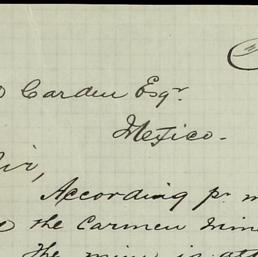 Carden Esqr.
Mexico.
Sir,
According pr
the Carmen
the mine is